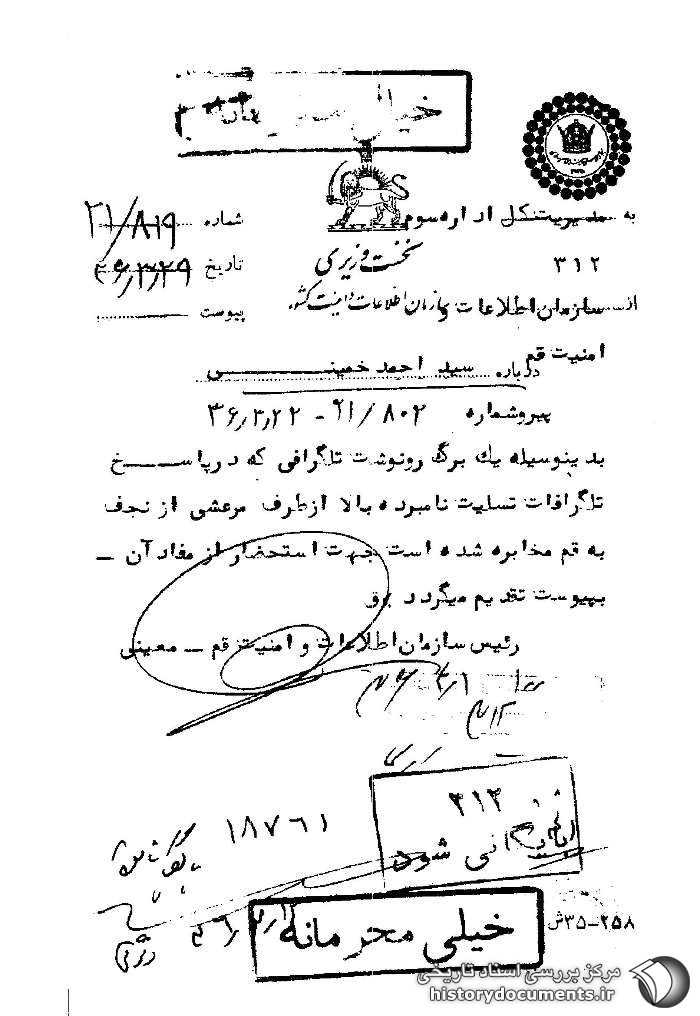 خیلی محرمانه
به مدیریت کل اداره سوم
۳۱۲
شماره ۲۱/۸۱۹
نخست وزیری
تاریخ ۳۶/۳/۲۹
از سازمان اطلاعات و
سازمان اطلاعات و امنیت کشور
پیوست
امنیت قم
درباره سید احمد خمینی
پیروشماره ۸۰۲/۲۱ - ۳۶/۳/۲۲
بدینوسیله یک برگ رونوشت تلگرافی که درپاسخ
تلگرافات تسلیت نامبرده بالا ازطرف مرعشی از نجف
به قم مخابره شده است جهت استحضار از مفاد آن –
بپیوست تقدیم میگردد
رئیس سازمان اطلاعات و امنیت قم – معینی
۳۱۲
بایگانی شود
۱۸۷۶۱
خیلی محرمانه
۳۵-۲۵۸ش
مرکز بررسی اسناد تاریخی
historydocuments.ir